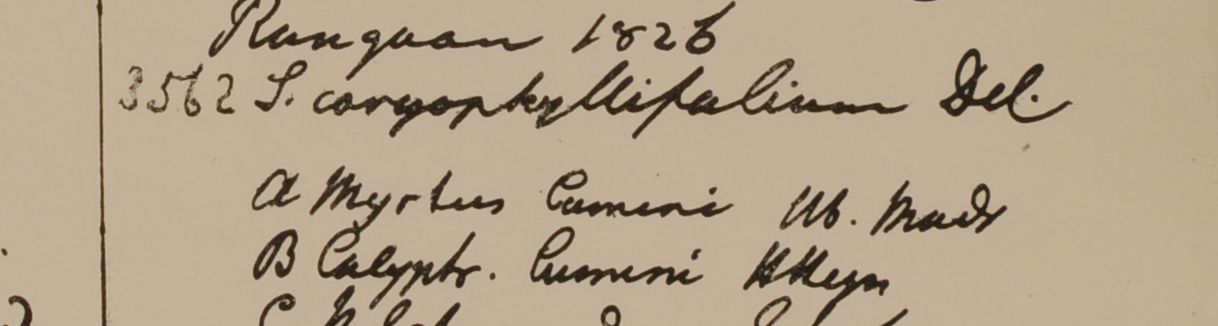 Rangoon 1826
3562 S. caryophyllifolium Del.
A Myrtus Cumini Hb. Madr
B Calyptr. Cumini HHeyn